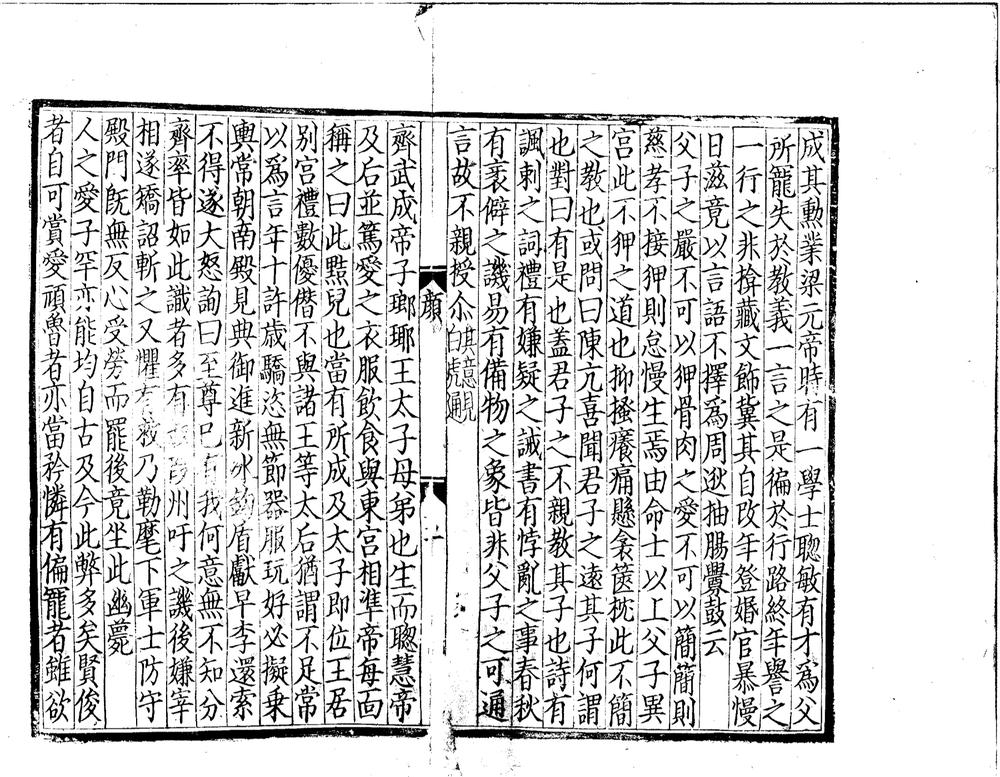 成其勲業梁元帝時有一學士聦敏有才爲父
所寵失於教義一言之是徧於行路終年譽之
一行之非揜藏文飾冀其自改年登婚宦暴慢
日滋竟以言語不擇爲周逖抽腸釁鼓云
父子之嚴不可以狎骨肉之愛不可以簡簡則
慈孝不接狎則怠慢生焉由命士以上父子異
宫此不狎之道也抑搔癢痛懸衾篋枕此不簡
之教也或問曰陳亢喜聞君子之遠其子何謂
也對曰有是也蓋君子之不親教其子也詩有
諷刺之詞禮有嫌疑之誡書有悖亂之事春秋
有衺僻之譏易有備物之象皆非父子之可通
言故不親授尒其意見白虎通
顔
齊武成帝子瑯瑘王太子母弟也生而聦慧帝
及后並篤愛之衣服飲食與東宫相準帝每面
稱之曰此黠兒也當有所成及太子即位王居
别宫禮數優僭不與諸王等太后猶謂不足常
以爲言年十許歲驕恣無節器服玩好必擬乗
輿常朝南殿見典御進新冰鈎盾獻早李還索
不得遂大怒訽曰至尊已有我何意無不知分
齊率皆如此識者多有 州吁之譏後嫌宰
相遂矯詔斬之又懼有救乃勒麾下軍士防守
殿門旣無反心受勞而罷後竟坐此幽薨
人之愛子罕亦能均自古及今此弊多矣賢俊
者自可賞愛頑魯者亦當矜憐有偏寵者雖欲